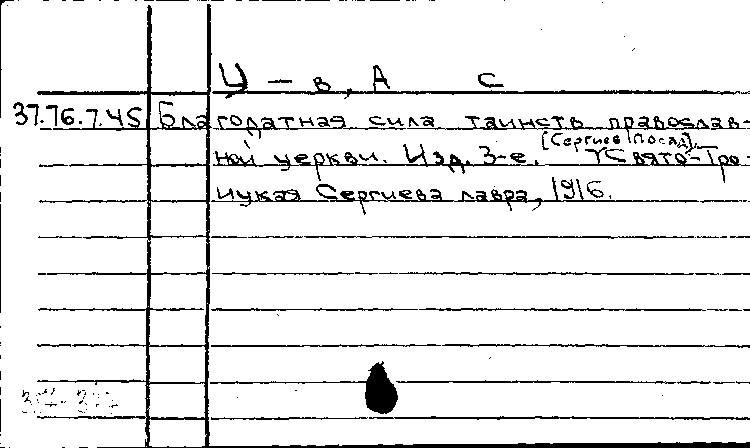 Ц – в, А С
37.76.7.45 Благодатная сила таинств православ-
[Сергиев Посад],
ной церкви. Изд. 3-е. Свято-Тро-
ицкая Сергиева лавра, 1916.